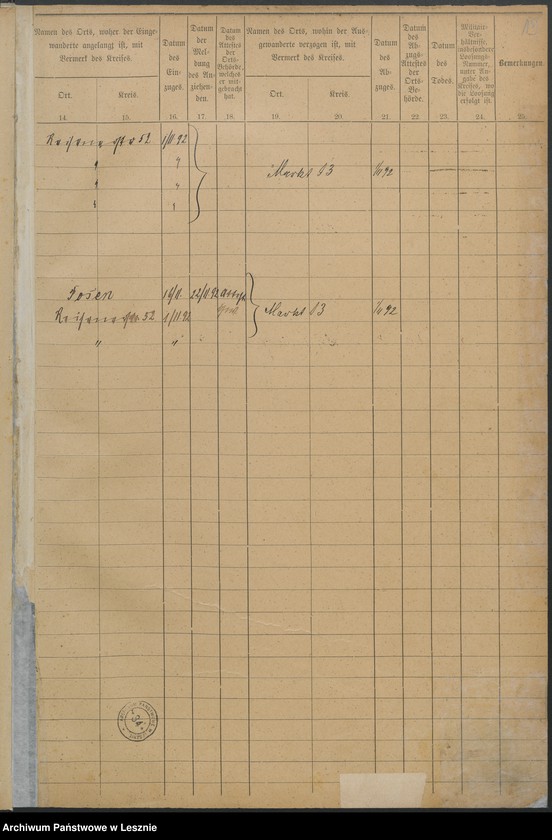 Namen des Orts, woher der Einge-
wanderte angelangt ist, mit
Vermerk des Kreises.
Ort.
Kreis.
Datum
des
Ein-
zuges.
Datum
der
Mel-
dung
des An-
ziehen-
den.
Datum
des
Attestes
der
Orts-
Behörde,
welches
er mit-
gebracht
hat.
Namen des Orts, wohin der Aus-
gewanderte verzogen ist, mit
Vermerk des Kreises.
Ort.
Kreis.
Datum
des
Ab-
zuges.
Datum
des
Ab-
zugs-
Attestes
der
Orts-
Be-
hörde.
Datum
des
Todes.
Militair-
Ver-
hältnisse,
insbesondere
Loosungs-
Nummer,
unter An-
gabe des
Kreises, wo
die Loosung
erfolgt ist.
Bemerkungen.
14. 15. 16. 17. 18. 19. 20. 21. 22. 23. 24. 25.
52 1/11 92
" "
Markt 13 92
" "
Posen 22/11 92
52 1/11 92 Markt 13 92
" "
Archiwum Państwowe w Lesznie